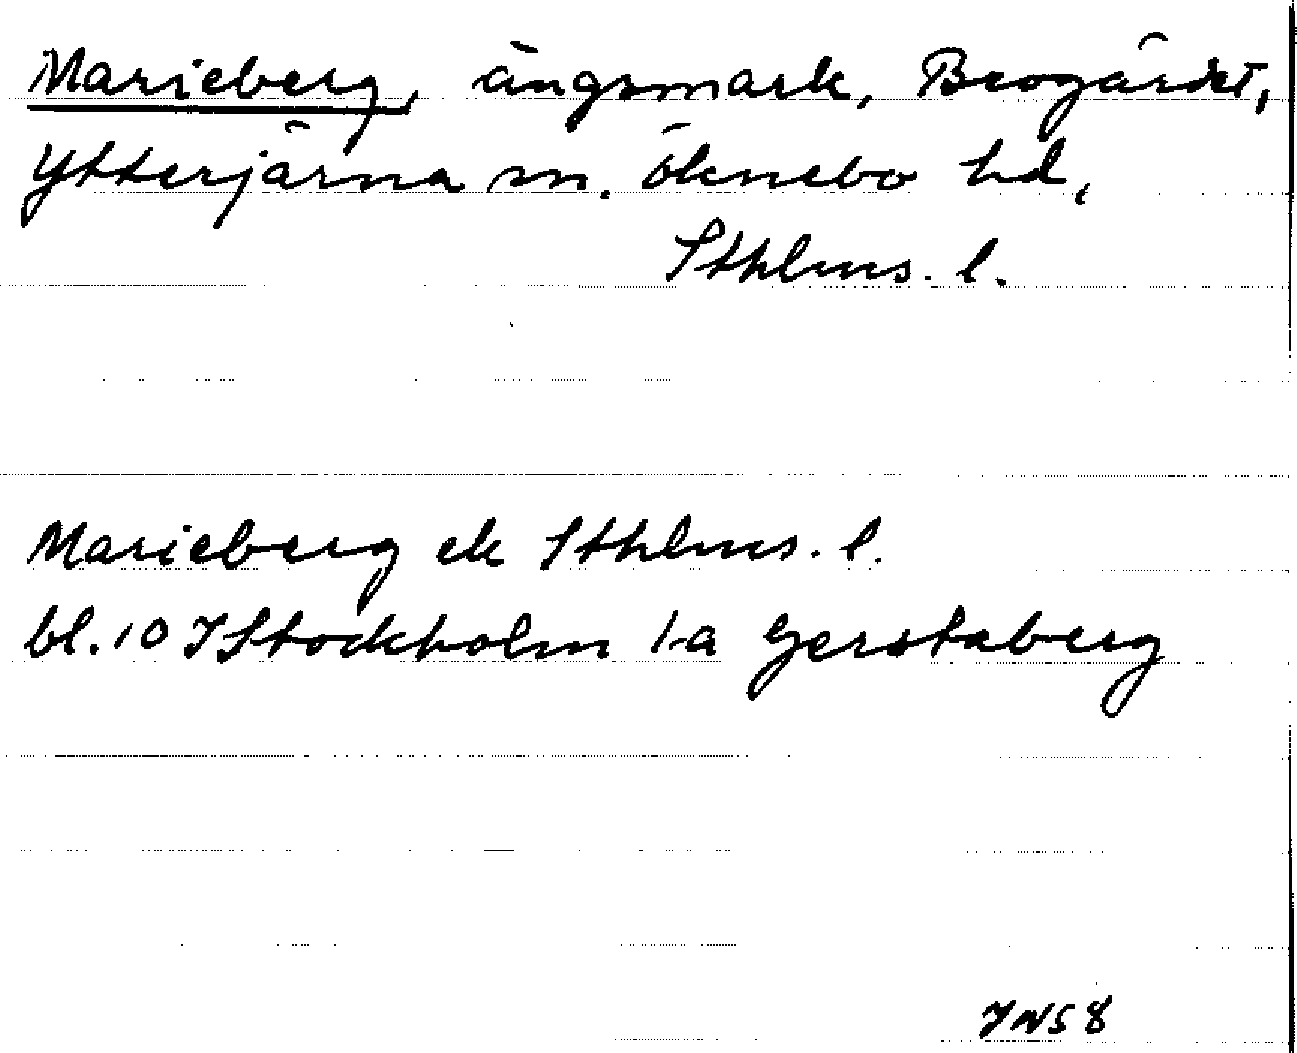 Marieberg, ängsmark, Beogärdet,
Ytterjärna sn. Öknebo hd,
Sthlms. l.
Marieberg ek Sthlms. l.
bl. 10 I Stockholm 1a Gerstaberg
JN58